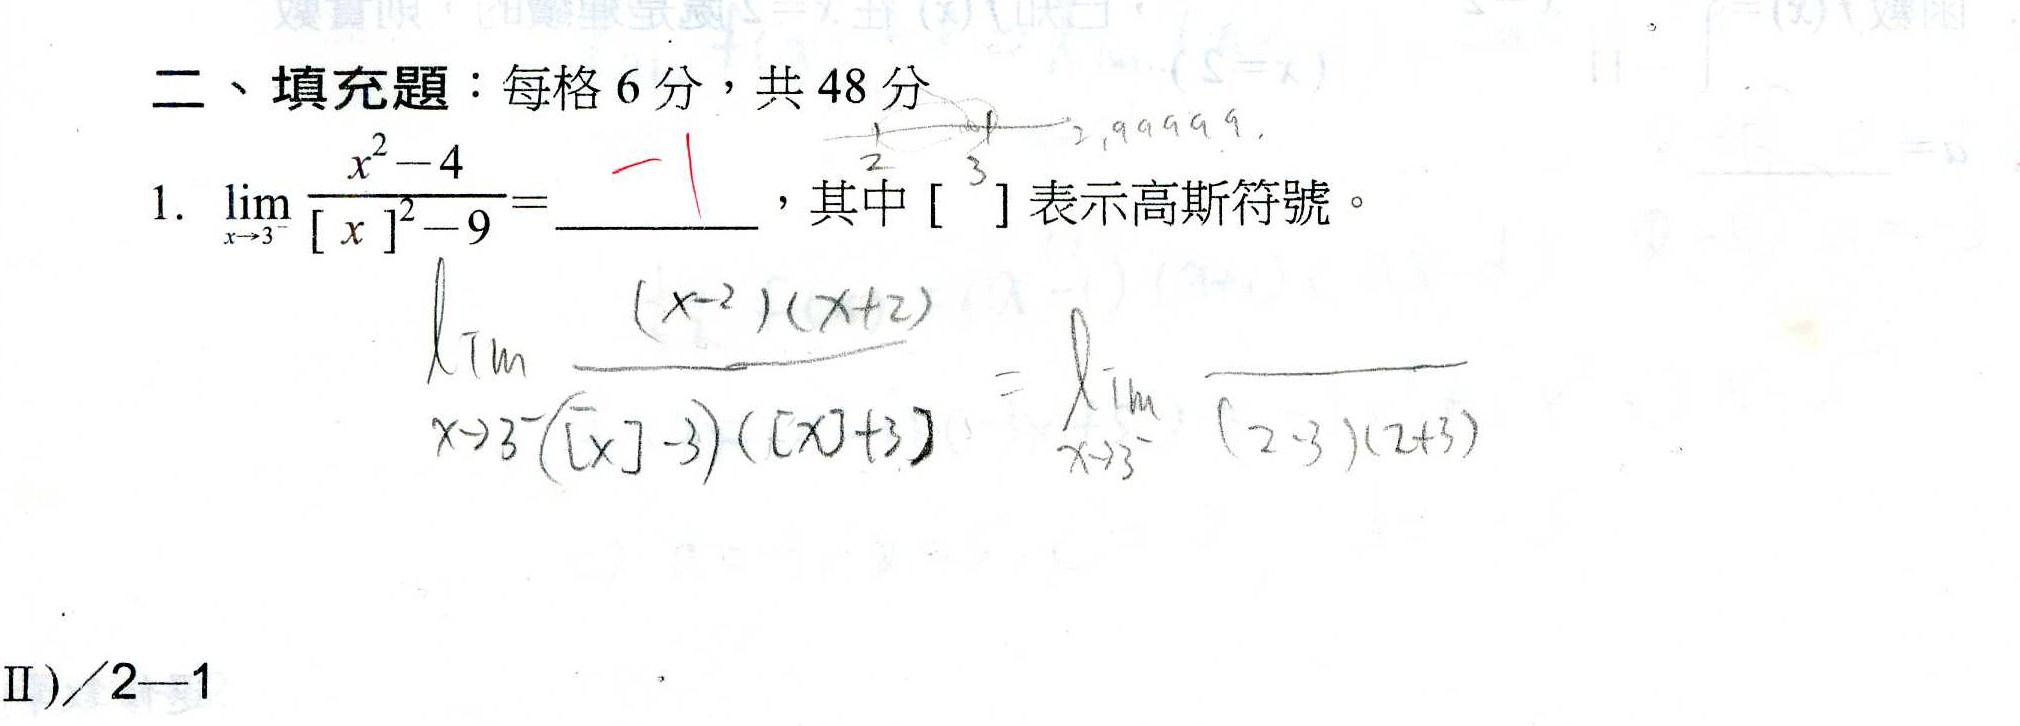 二、填充題：每格 6 分，共 48 分
2 3 2.99999.
1. lim x→3⁻ (x²－4)/([ x ]²－9)= －1 ，其中 [ ] 表示高斯符號。
lim x→3⁻ (x-2)(x+2)/([x]-3)([x]+3) = lim x→3⁻ /(2-3)(2+3)
Ⅱ)／2—1